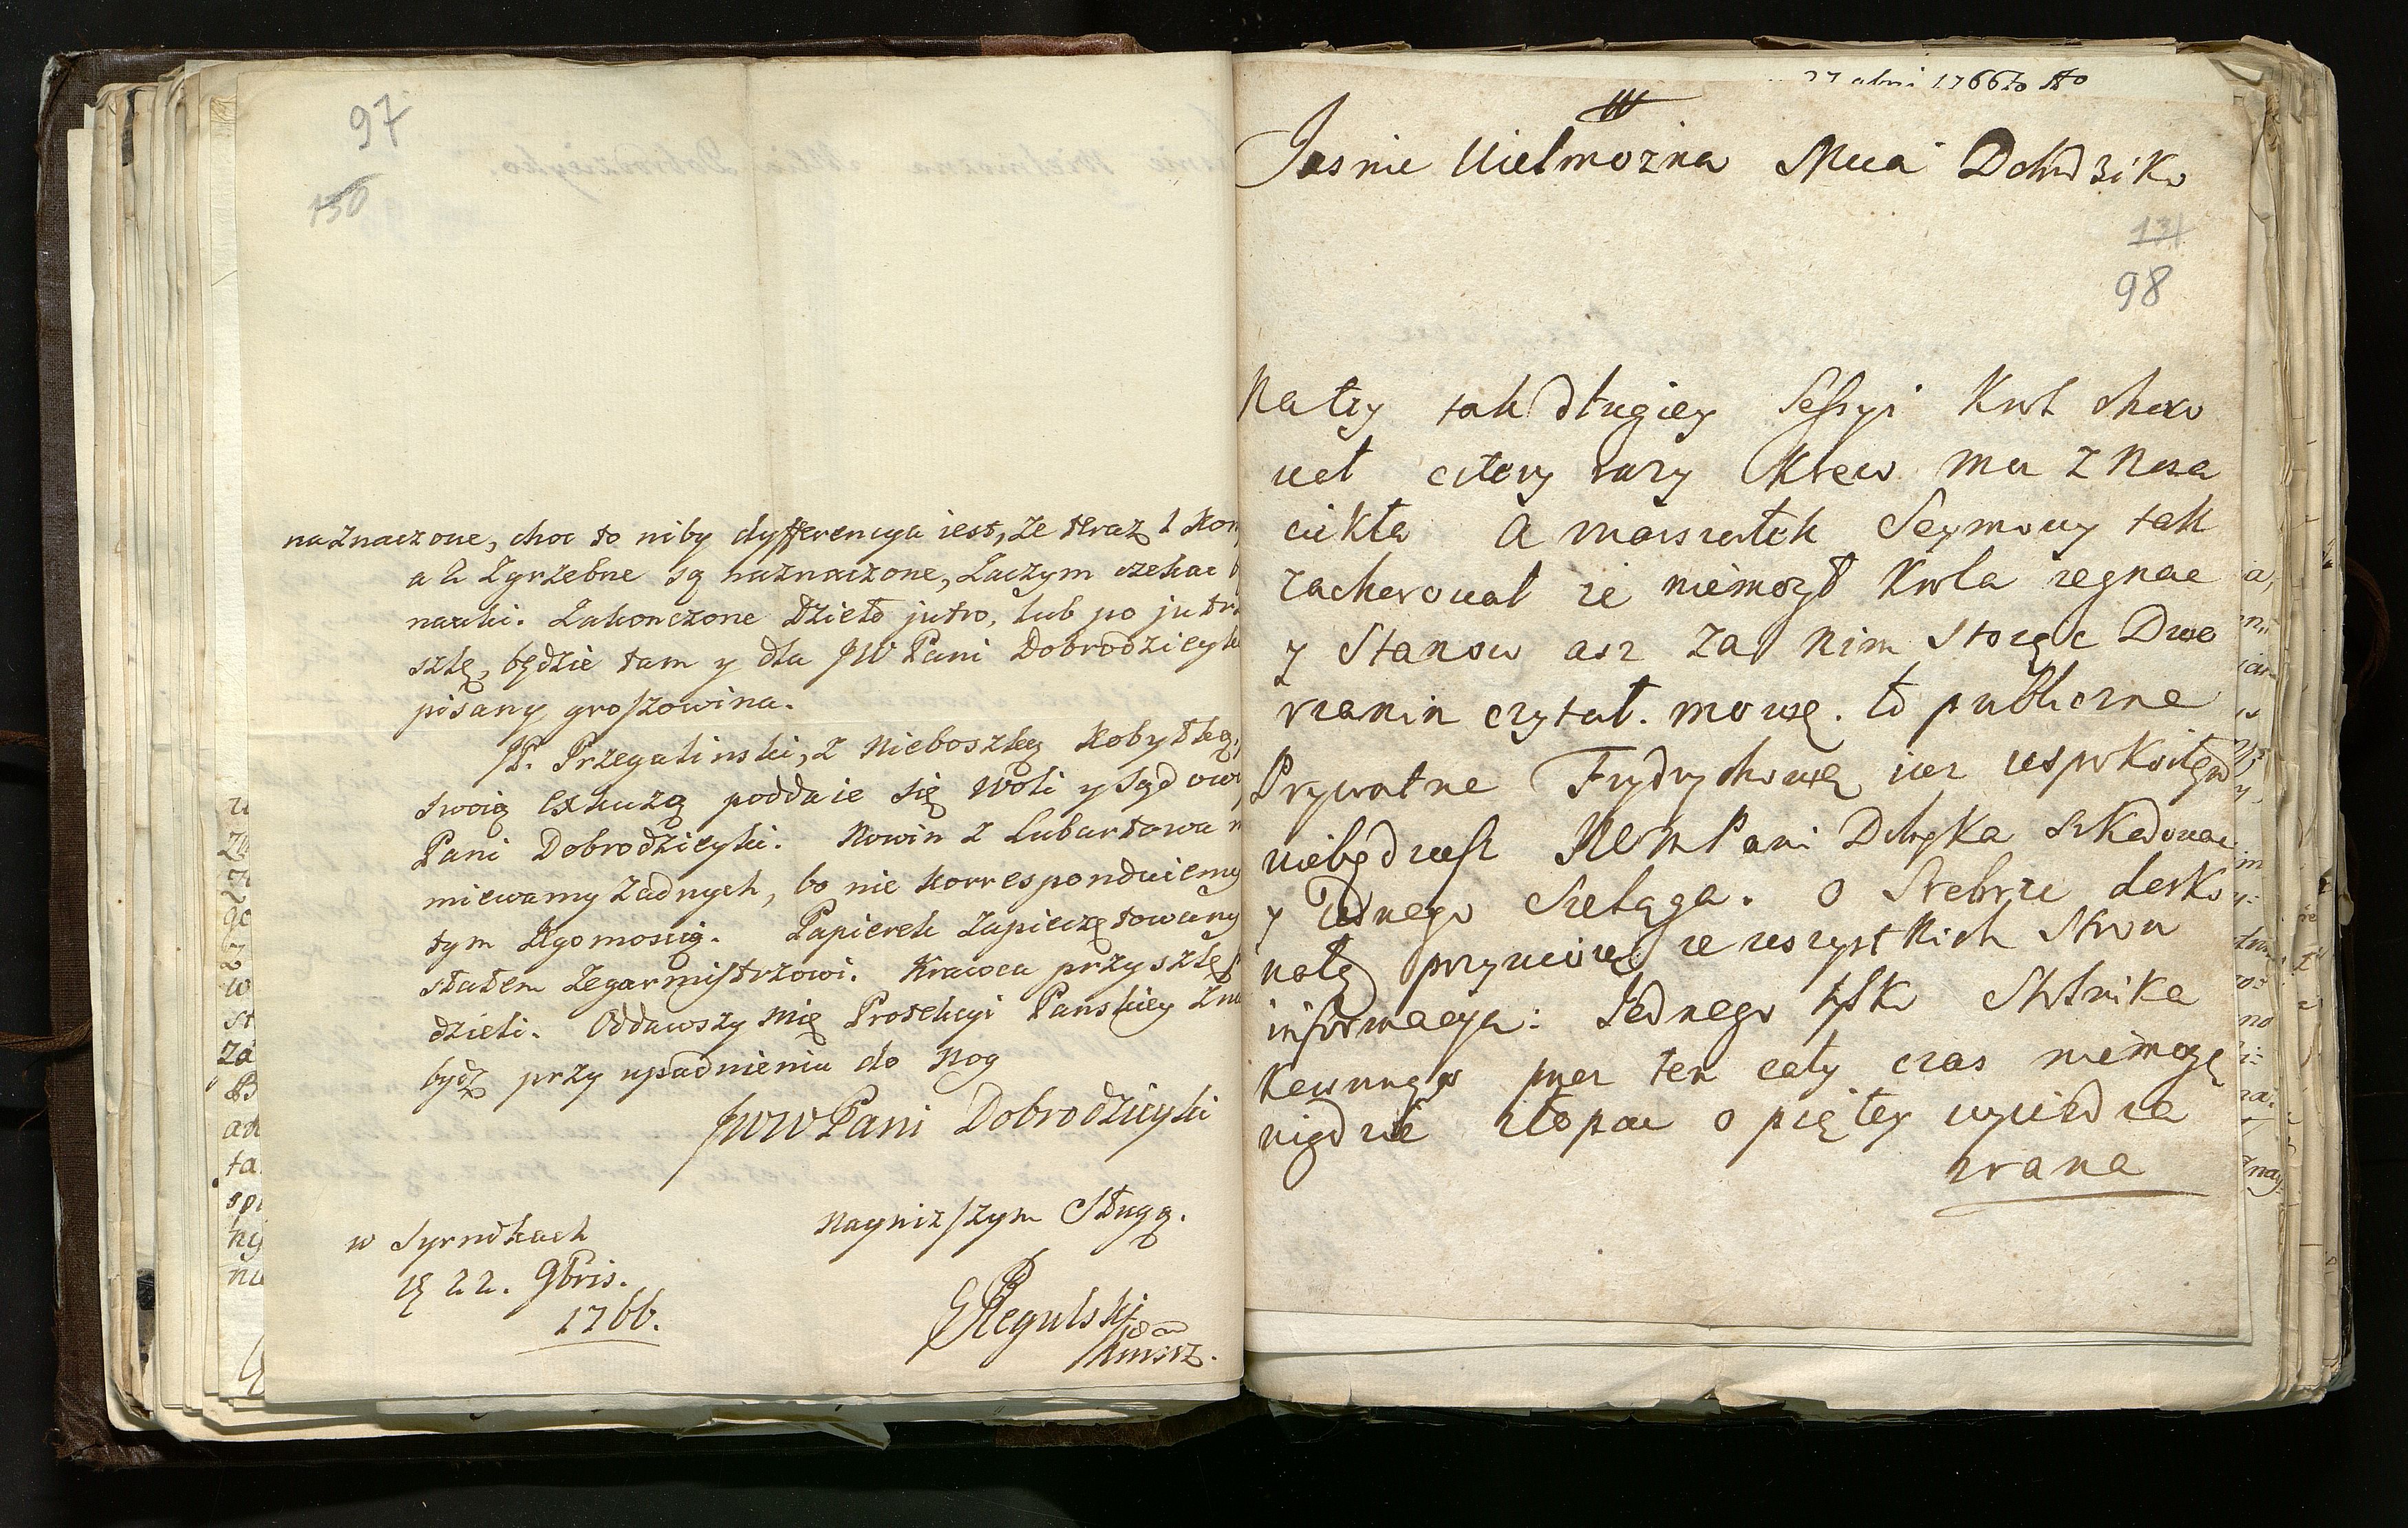 97
150
naznaczone, choc to niby dyfferencya iest, ze teraz 2 Kon
a 2 Zgrzebne są naznaczone, Zaczym czekac
nauki. Zakonczone Dzieło jutro, lub po jutr
szlę, będzie tam y dla JW Pani Dobrodzieyk
pisany groszowina.
JP. Przegalinski, z Nieboszką Kobyłką,
swoią exkuzą poddaie się Woli y Sądowi
Pani Dobrodzieyki. Nowin z Lubartowa n
miewamy Zadnych, bo nie korrespónduiemy
tym Jegomoscią. Papierek Zapieczętowany
słałem Zegarmistrzowi. Krawca przyszlę
dzieli. Oddawszy mię Protekcyi Panskiey
bydz przy upadnieniu do Nog
JWW Pani Dobrodzieyki
Nayniższym Sługą.
w Syrnikach
22. 9bris.
1766.
Regulski
1766
Jasnie Wielmożna Mcia Dobrdzika
131
98
Na try tak długiey Sessyi Krol choro
wał cztery razy Krew mu z Nosa
ciekła A marszałek Seymowy tak
zachorował że niemogł Krola żegnac
y Stanow asz za Nim Stoięc Dwo
rzanin czytał. mowę. to publiczne
Prywatne Frydrychowę iuz uspokoiłem
niebędziesz JWM Pani Dobryka szkodowac
y Jednego Szeląga. o Srebrze dosko
nałę przywiozę ze wszystkich Stron
informacya: Jednego tylko Stolnika
przez ten cały czas niemogę
nigdzie złapac o piątey wyiedza
zrana